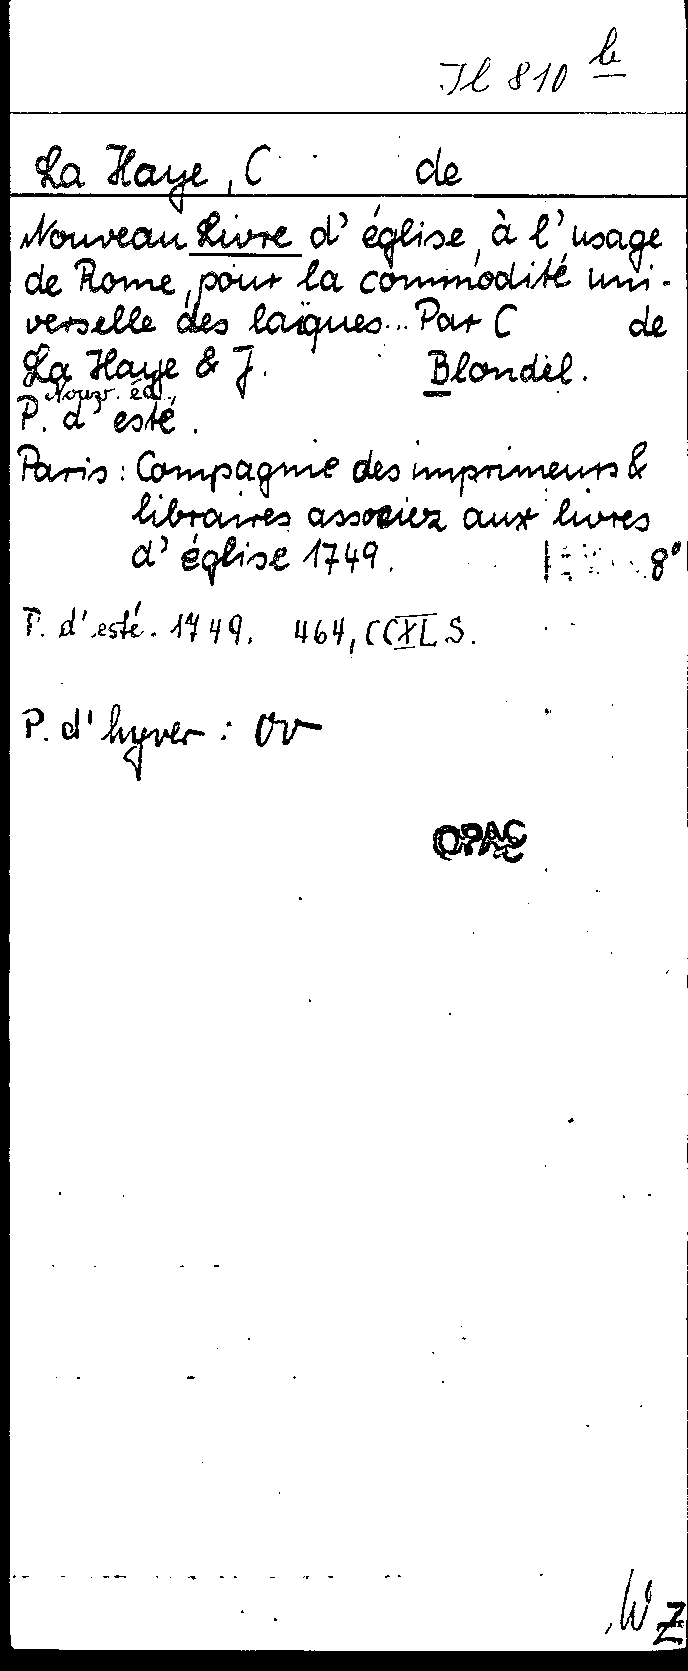 Il 810 b
La Haye, C de
Nouveau Livre d'église, à l'usage
de Rome, pour la commodité uni-
verselle des laïques... Par C de
La Haye & J. Blondel.
Nouv. éd.,
P. d'esté.
Paris: Compagnie des imprimeurs &
libraires associez aux livres
d'église 1749. 8°
P. d'esté. 1749. 464, CCXL S.
P. d'hyver:
OPAC
WZ